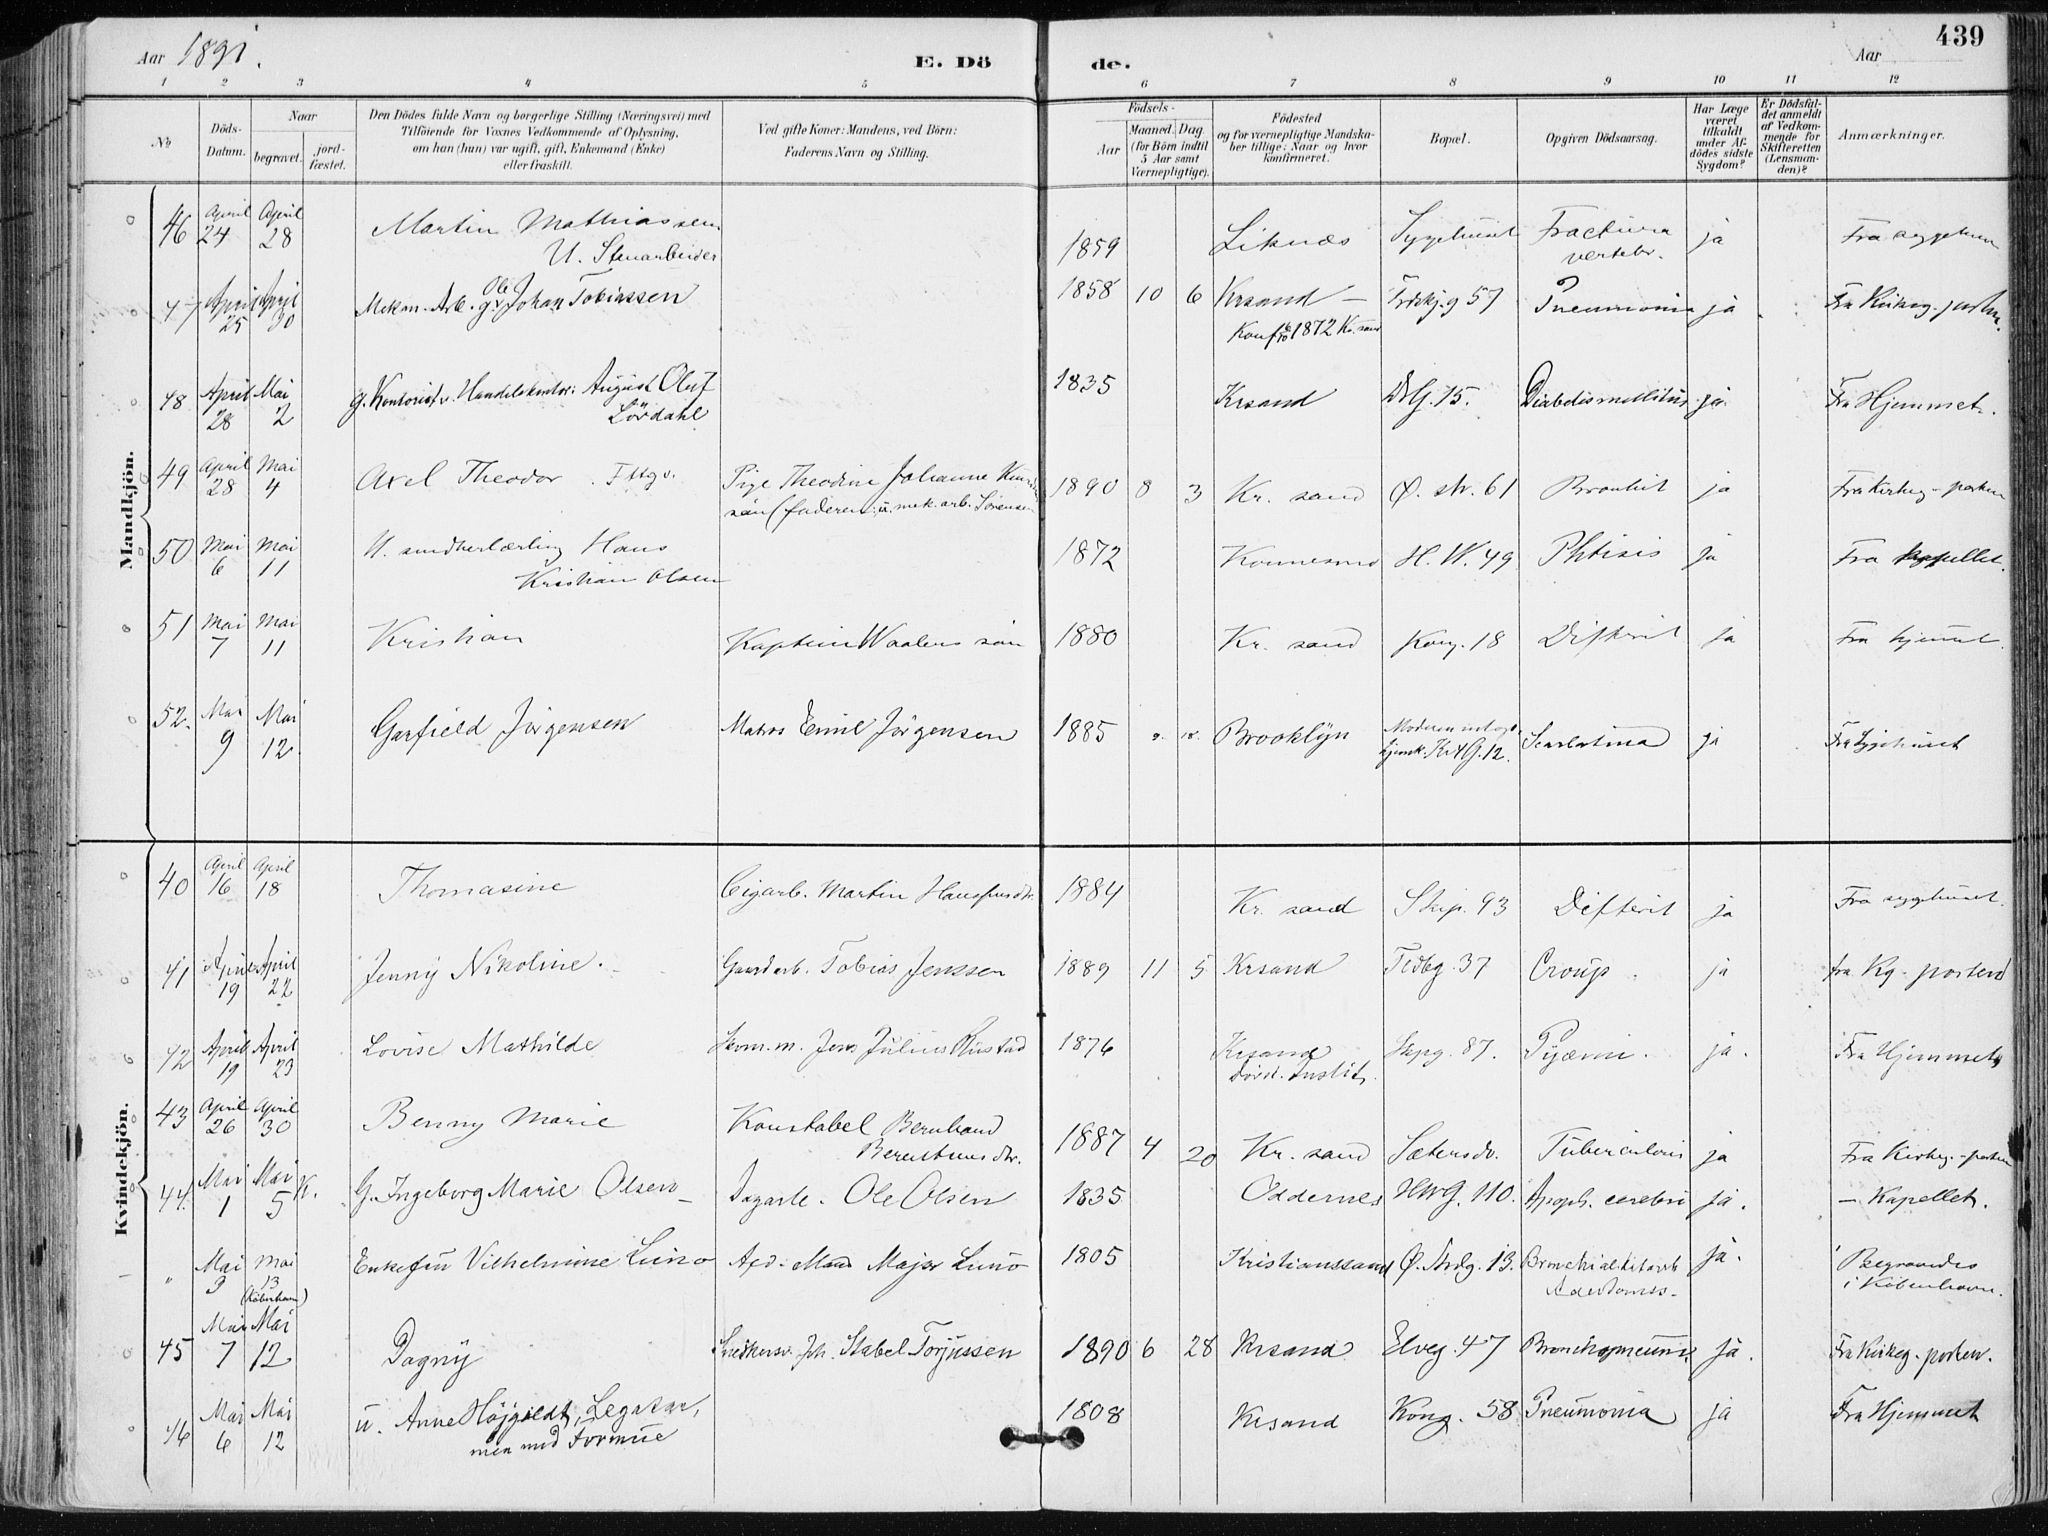 439
Aar 1891.
E. Dö de.
Aar
1 2 3 4 5 6 7 8 9 10 11 12
No
Döds-Datum.
Naar
begravet.
jord-fæstet.
Den Dödes fulde Navn og borgerlige Stilling (Næringsvei) med
Tilföiende for Voxnes Vedkommende af Oplysning,
om han (hun) var ugift, gift, Enkemand (Enke)
eller fraskilt.
Ved gifte Koner: Mandens, ved Börn:
Faderens Navn og Stilling.
Födsels-
Aar
Maaned. Dag
(for Börn indtil
5 Aar samt
Værnepligtige).
Födested
og for værnepligtige Mandska-
ber tillige: Naar og hvor
konfirmeret.
Bopæl.
Opgiven Dödsaarsag.
Har Læge
været
tilkaldt
under Af-
dödes sidste
Sygdom?
Er Dödsfal-
det anmeldt
af Vedkom-
mende for
Skifteretten
(Lensman-
den)?
Anmærkninger.
Mandkjön.
46 April 24 April 28 Martin Mathiassen 1859 Liknæs Sygehuset Fractura ja Fra sygehuset
U. Stenarbeider vertebr.
47 April 25 April 30 Mekan. Arb. g. Ole Johan Tobiassen 1858 10 6 Krsand — 57 Pneumonia ja Fra Kirkeg-porten.
Konf 1872 Kr.sand
48 April 28 Mai 2 g. Kontorist v. August Oluf 1835 Krsand 15. Diabetis mellitus ja Fra Hjemmet.
Lövdahl
49 April 28 Mai 4 Axel Theodor Pige Theodine Johanne 1890 8 3 Kr. sand Ø. str. 61 Bronkit ja Fra Kirkeg-porten
sön (faderen: u. mek. arb. Sörensen
50 Mai 6 Mai 11 U. Hans 1872 H. W. 49 Phtisis ja Fra kapellet.
Kristian Olsen
51 Mai 7 Mai 11 Kristian Kaptein Waalers sön 1880 Kr. sand Kong. 18 Difterit ja Fra hjemmet.
52. Mai 9 Mai 12 Garfield Jörgensen Matros Emil Jörgensen 1885 Brooklyn Moderen 12. Scarlatina ja Fra Sygehuset
Kvindekjön.
40 April 16 April 18 Thomasine Cigarb. Martin 1884 Kr. sand Skip. 93 Difterit ja Fra sygehuset.
41 April 19 April 22 Jenny Nikoline. Gaardarb. Tobias Jenssen 1889 11 5 Krsand 37 Croup. ja fra Kg-porten
42 April 19 April 23 Lovise Mathilde Skom. m. Jens Julius Rustad 1876 Krsand Skpg. 87. Pyæmi. ja. Fra Hjemmet
Instit.
43 April 26 April 30 Benny Marie Konstabel Bernhard 1887 4 20 Kr. sand Sætersdv. Tuberculosis ja Fra Kirkeg.-porten
Berentsens dtr.
44. Mai 1 Mai 5 K. G. Ingeborg Marie Olsen Dagarb. Ole Olsen 1835 Oddernes HWG. 110. Apopl. cerebri ja. — Kapellet.
" Mai 3 Mai 13 (Köbenhavn) Enkefru Vilhelmine Luno Afd. Mand Major Luno 1805 Kristianssand Ø. Strdg. 13. Bronchialkatarrh ja. Begravedes
i Köbenhavn.
45 Mai 7 Mai 12 Dagny Snedkersv. Joh. Stabel Torjussen 1890 6 28 Krsand Elveg. 47 Bronchopneumoni ja. Fra Kirkeg-porten.
46 Mai 6 Mai 12 u. Anne Höjgildt, Legatar, 1808 Krsand Kong. 58 Pneumonia ja Fra Hjemmet
men med Formue